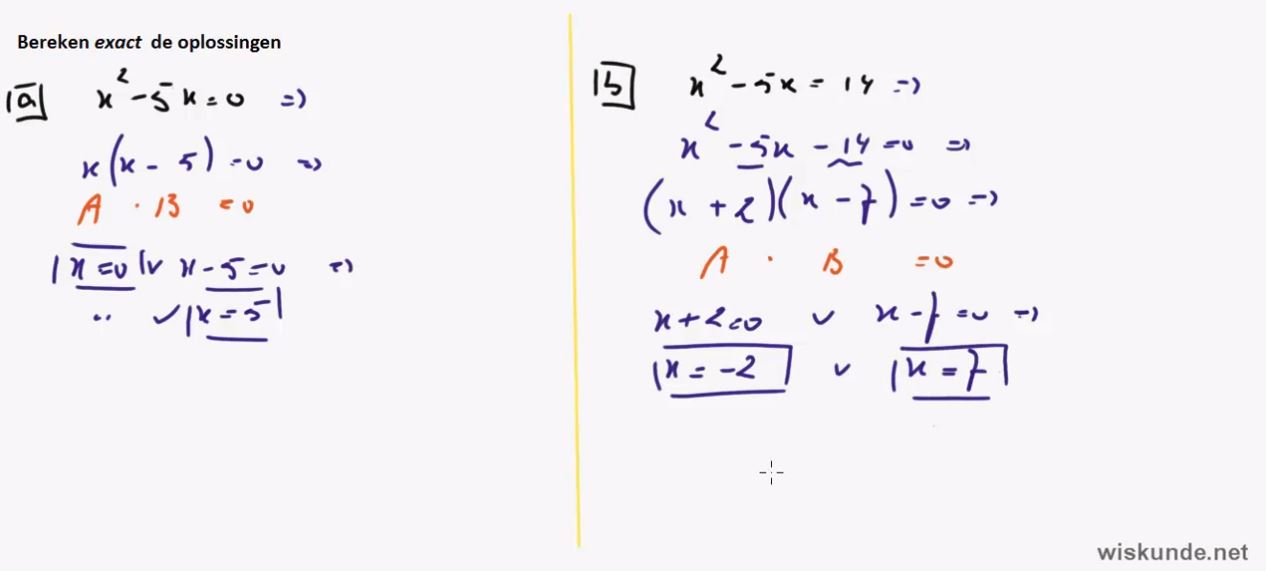 Bereken exact de oplossingen
1a x² - 5x = 0 =>
x(x - 5) = 0 =>
A · B = 0
x = 0 ∨ x - 5 = 0 =>
.. ∨ x = 5
1b x² - 5x = 14 =>
x² - 5x - 14 = 0 =>
(x + 2)(x - 7) = 0 =>
A · B = 0
x + 2 = 0 ∨ x - 7 = 0 =>
x = -2 ∨ x = 7
wiskunde.net